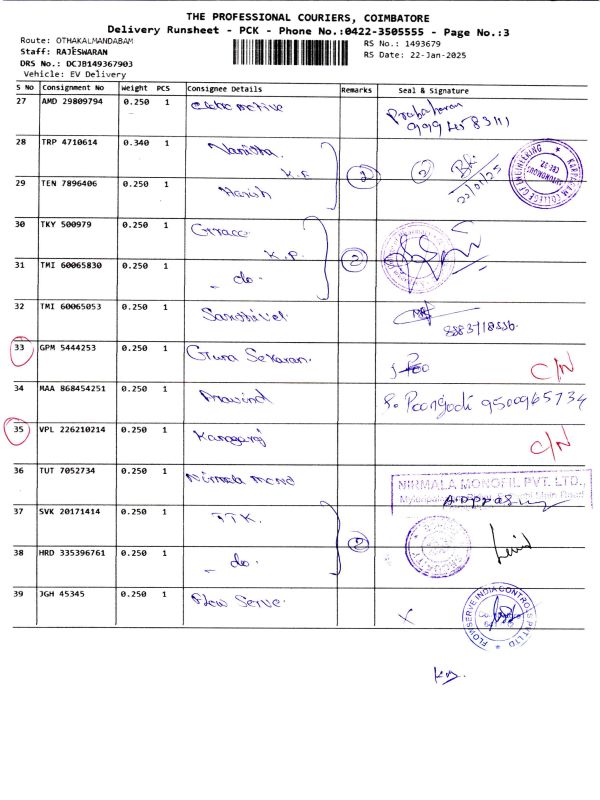 THE PROFESSIONAL COURIERS, COIMBATORE
Delivery Runsheet - PCK - Phone No.:0422-3505555 - Page No.:3
Route: OTHAKALMANDABAM
RS No.: 1493679
Staff: RAJESWARAN
RS Date: 22-Jan-2025
DRS No.: DCJB149367903
Vehicle: EV Delivery
S No Consignment No Weight PCS Consignee Details Remarks Seal & Signature
27 AMD 29809794 0.250 1 Prabaharan
28 TRP 4710614 0.340 1 Vanitha. K.E 2 2 22/01/25
KARPAGAM COLLEGE OF ENGINEERING
29 TEN 7896406 0.250 1 Harish
30 TKY 500979 0.250 1 Grace K.P. 2
31 TMI 60065830 0.250 1 - do.
32 TMI 60065053 0.250 1 Sandhivel
33 GPM 5444253 0.250 1 Guna Sekaran. C/N
34 MAA 868454251 0.250 1 Aravind P. Poongodi 9500965734
35 VPL 226210214 0.250 1 Kangaraj C/N
36 TUT 7052734 0.250 1 Nirmala mono NIRMALA MONOFIL PVT. LTD.,
37 SVK 20171414 0.250 1 TTK. 2
38 HRD 335396761 0.250 1 - do.
39 JGH 45345 0.250 1 Flow Serve. X
FLOWSERVE INDIA CONTROLS PVT LTD